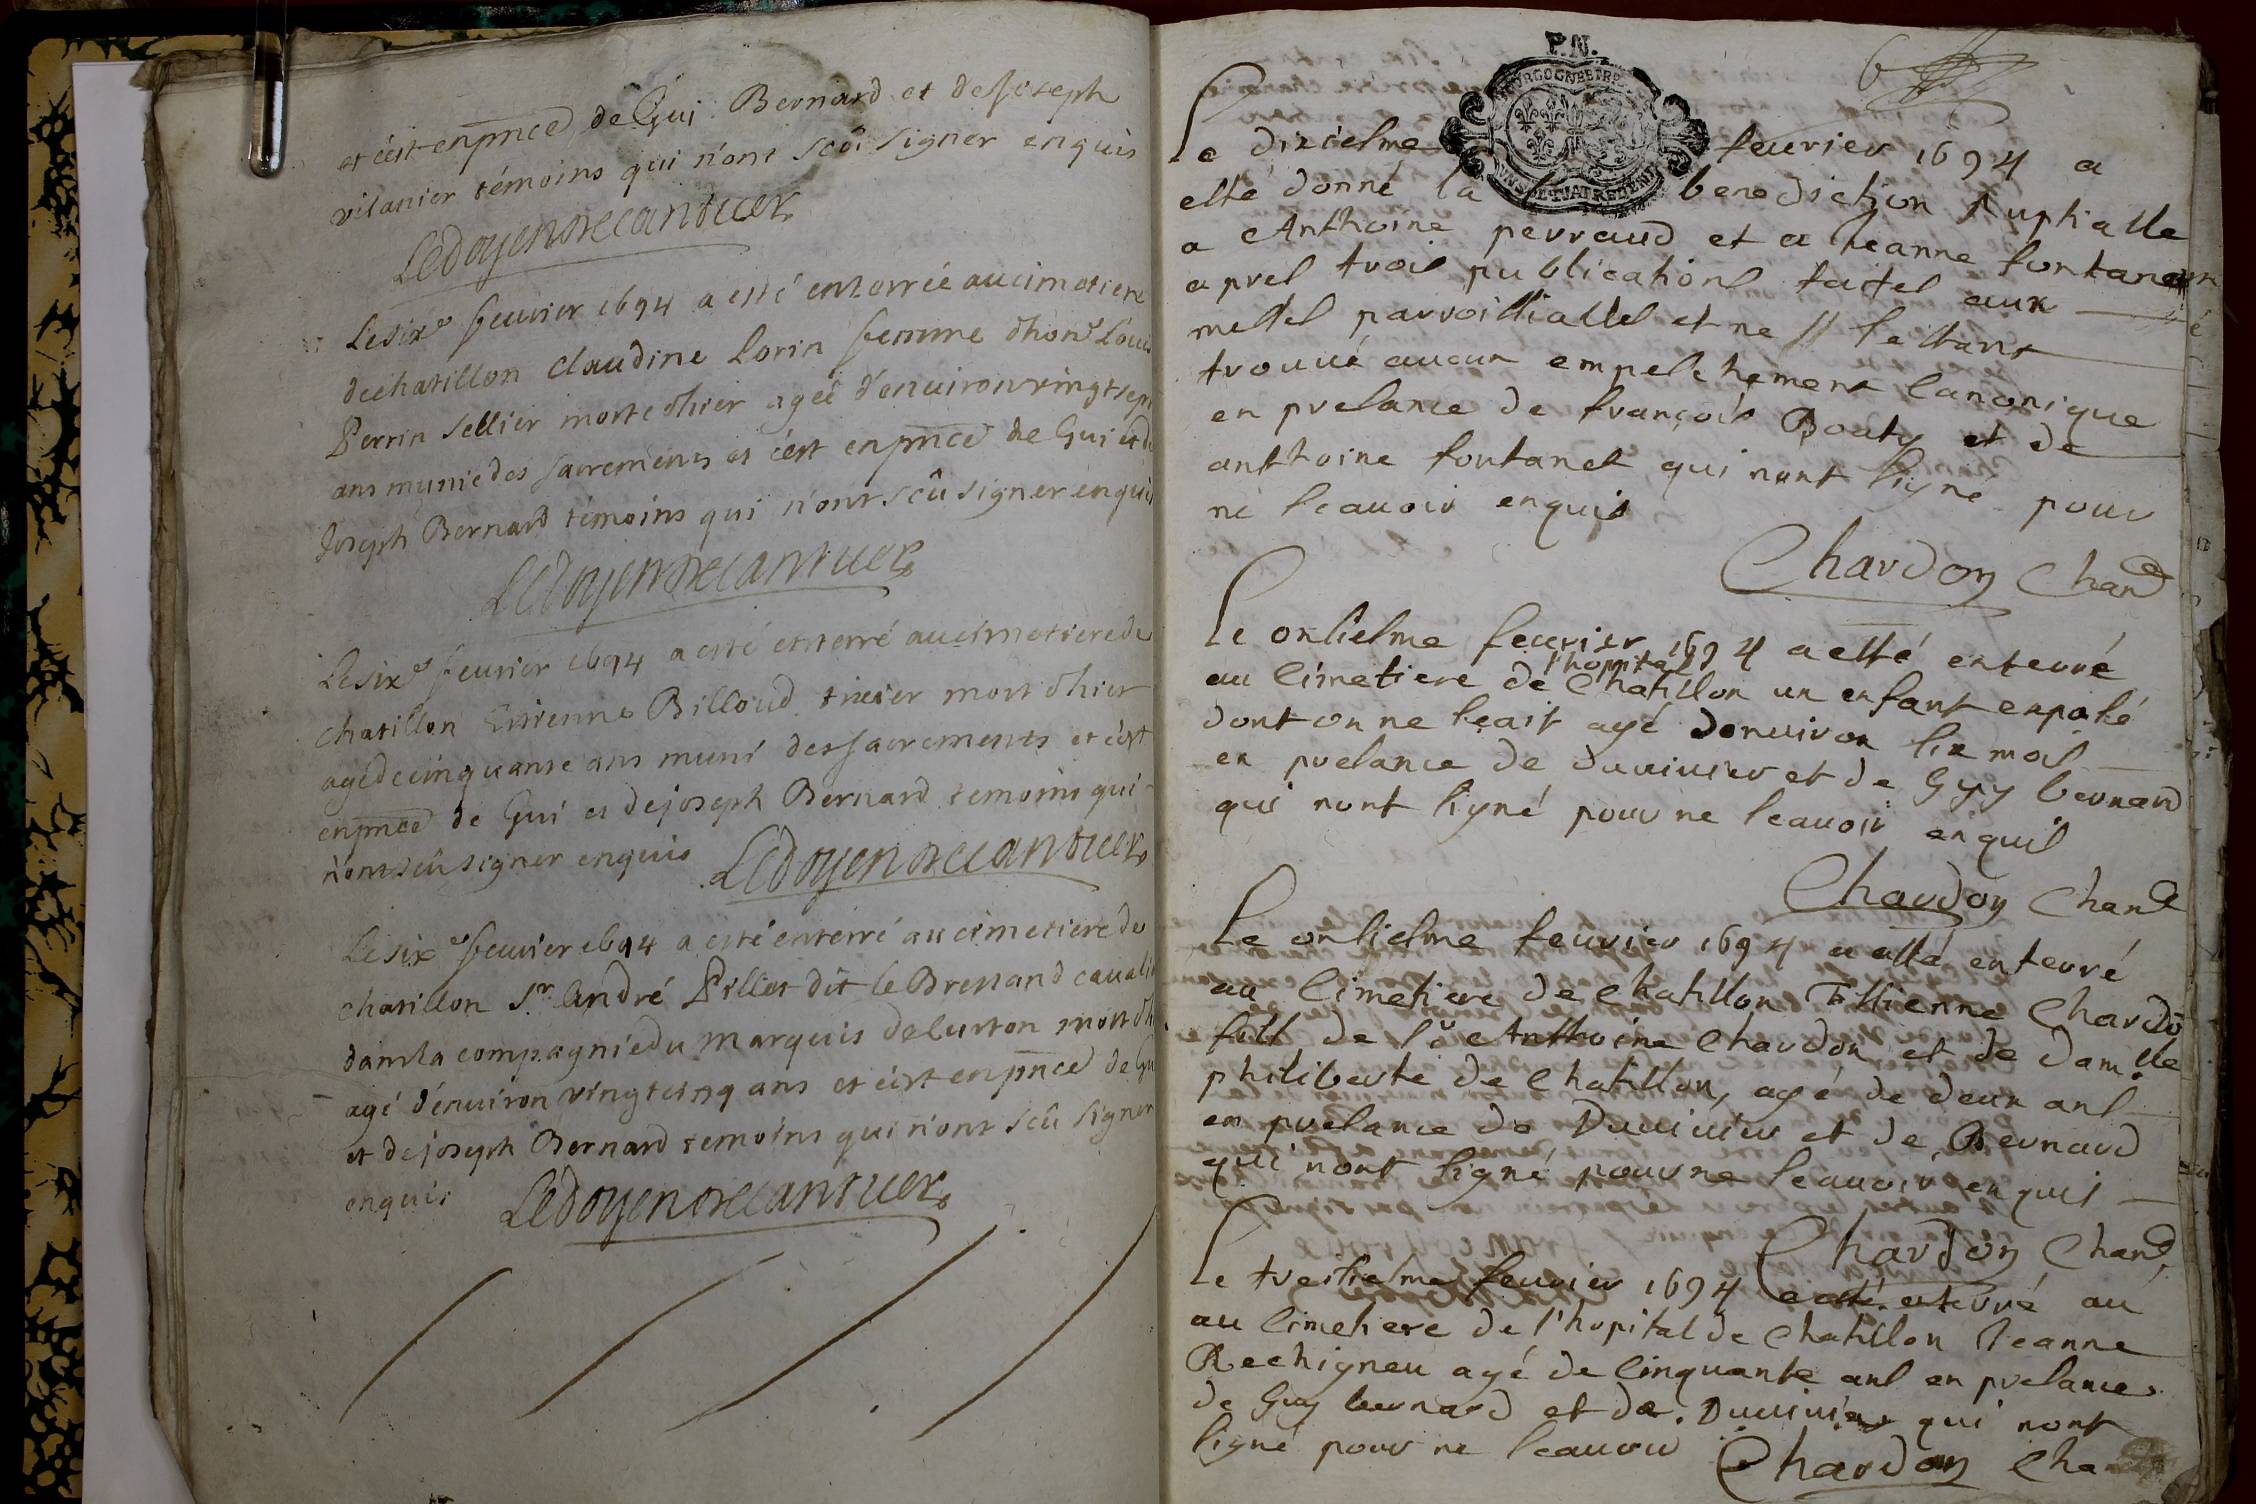 et c'est en pnce de Gui Bernard et de Joseph
vilanier témoins qui n'ont sçû signer enquis
Ledoyen de Cantuer
Le six.e feurier 1694 a esté enterrée au cimetiere
de chatillon Claudine Lorin femme d'hon.e Louis
Perrin sellier morte d'hier agée d'enuiron vingt sept
ans munie des sacrements et c'est en pnce de Gui et de
Joseph Bernard témoins qui n'ont sçû signer enquis
Ledoyen de Cantuer
Le six.e feurier 1694 a esté enterré au cimetiere de
chatillon Estienne Billoud tixier mort d'hier
agé de cinquante ans muni des sacrements et c'est
en pnce de Gui et de joseph Bernard temoins qui
n'ont sçû signer enquis Ledoyen de Cantuer
Le six.e feurier 1694 a esté enterré au cimetiere de
chatillon S.r André Pillot dit le Bressand caualie
dans la compagnie du marquis de mort d'h
agé d'enuiron vingt cinq ans et c'est en pnce de Gui
et de joseph Bernard temoins qui n'ont sçû signer
enquis Ledoyen de Cantuer
P.N.
6
BOURGOGNE ET BRE
Le diziesme feurier 1694 a
esté donné la benediction Nuptialle
a Anthoine perraud et a Jeanne fontanet
apres trois publications faites aux
messes parroissialles et ne s'estant
trouué aucun empeschement Canonique
en presance de françois Bouty et de
anthoine fontanet qui nont signé pour
ne scauoir enquis
Chardon Chan.e
Le onsiesme feurier 1694 a esté enterré
au Cimetiere de l'hopital Chatillon un enfant exposé
dont on ne sçait agé denuiron six mois
en presance de duuiuier et de Guy bernard
qui nont signé pour ne scauoir enquis
Chardon Chan.e
Le onsiesme feurier 1694 a esté enterré
au Cimetiere de Chatillon Estienne Chardō
fils de S.r Anthoine Chardon et de dam.lle
philiberte de Chatillon, agé de deux ans
en presance de Duuiuier et de Bernard
qui nont signé pour ne scauoir enquis
Chardon Chan.e
Le treisiesme feurier 1694 a esté enterré au
au Cimetiere de l'hopital de Chatillon Jeanne
Rechigneu agé de Cinquante ans en presance
de Guy bernard et de Duuiuier qui nont
signé pour ne scauoir Chardon Cha